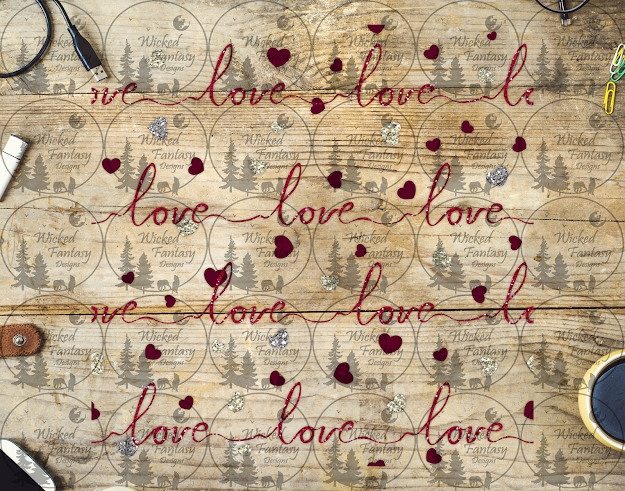 ve love love lo
love love love
ve love love lo
love love love
Wicked
Fantasy
Designs